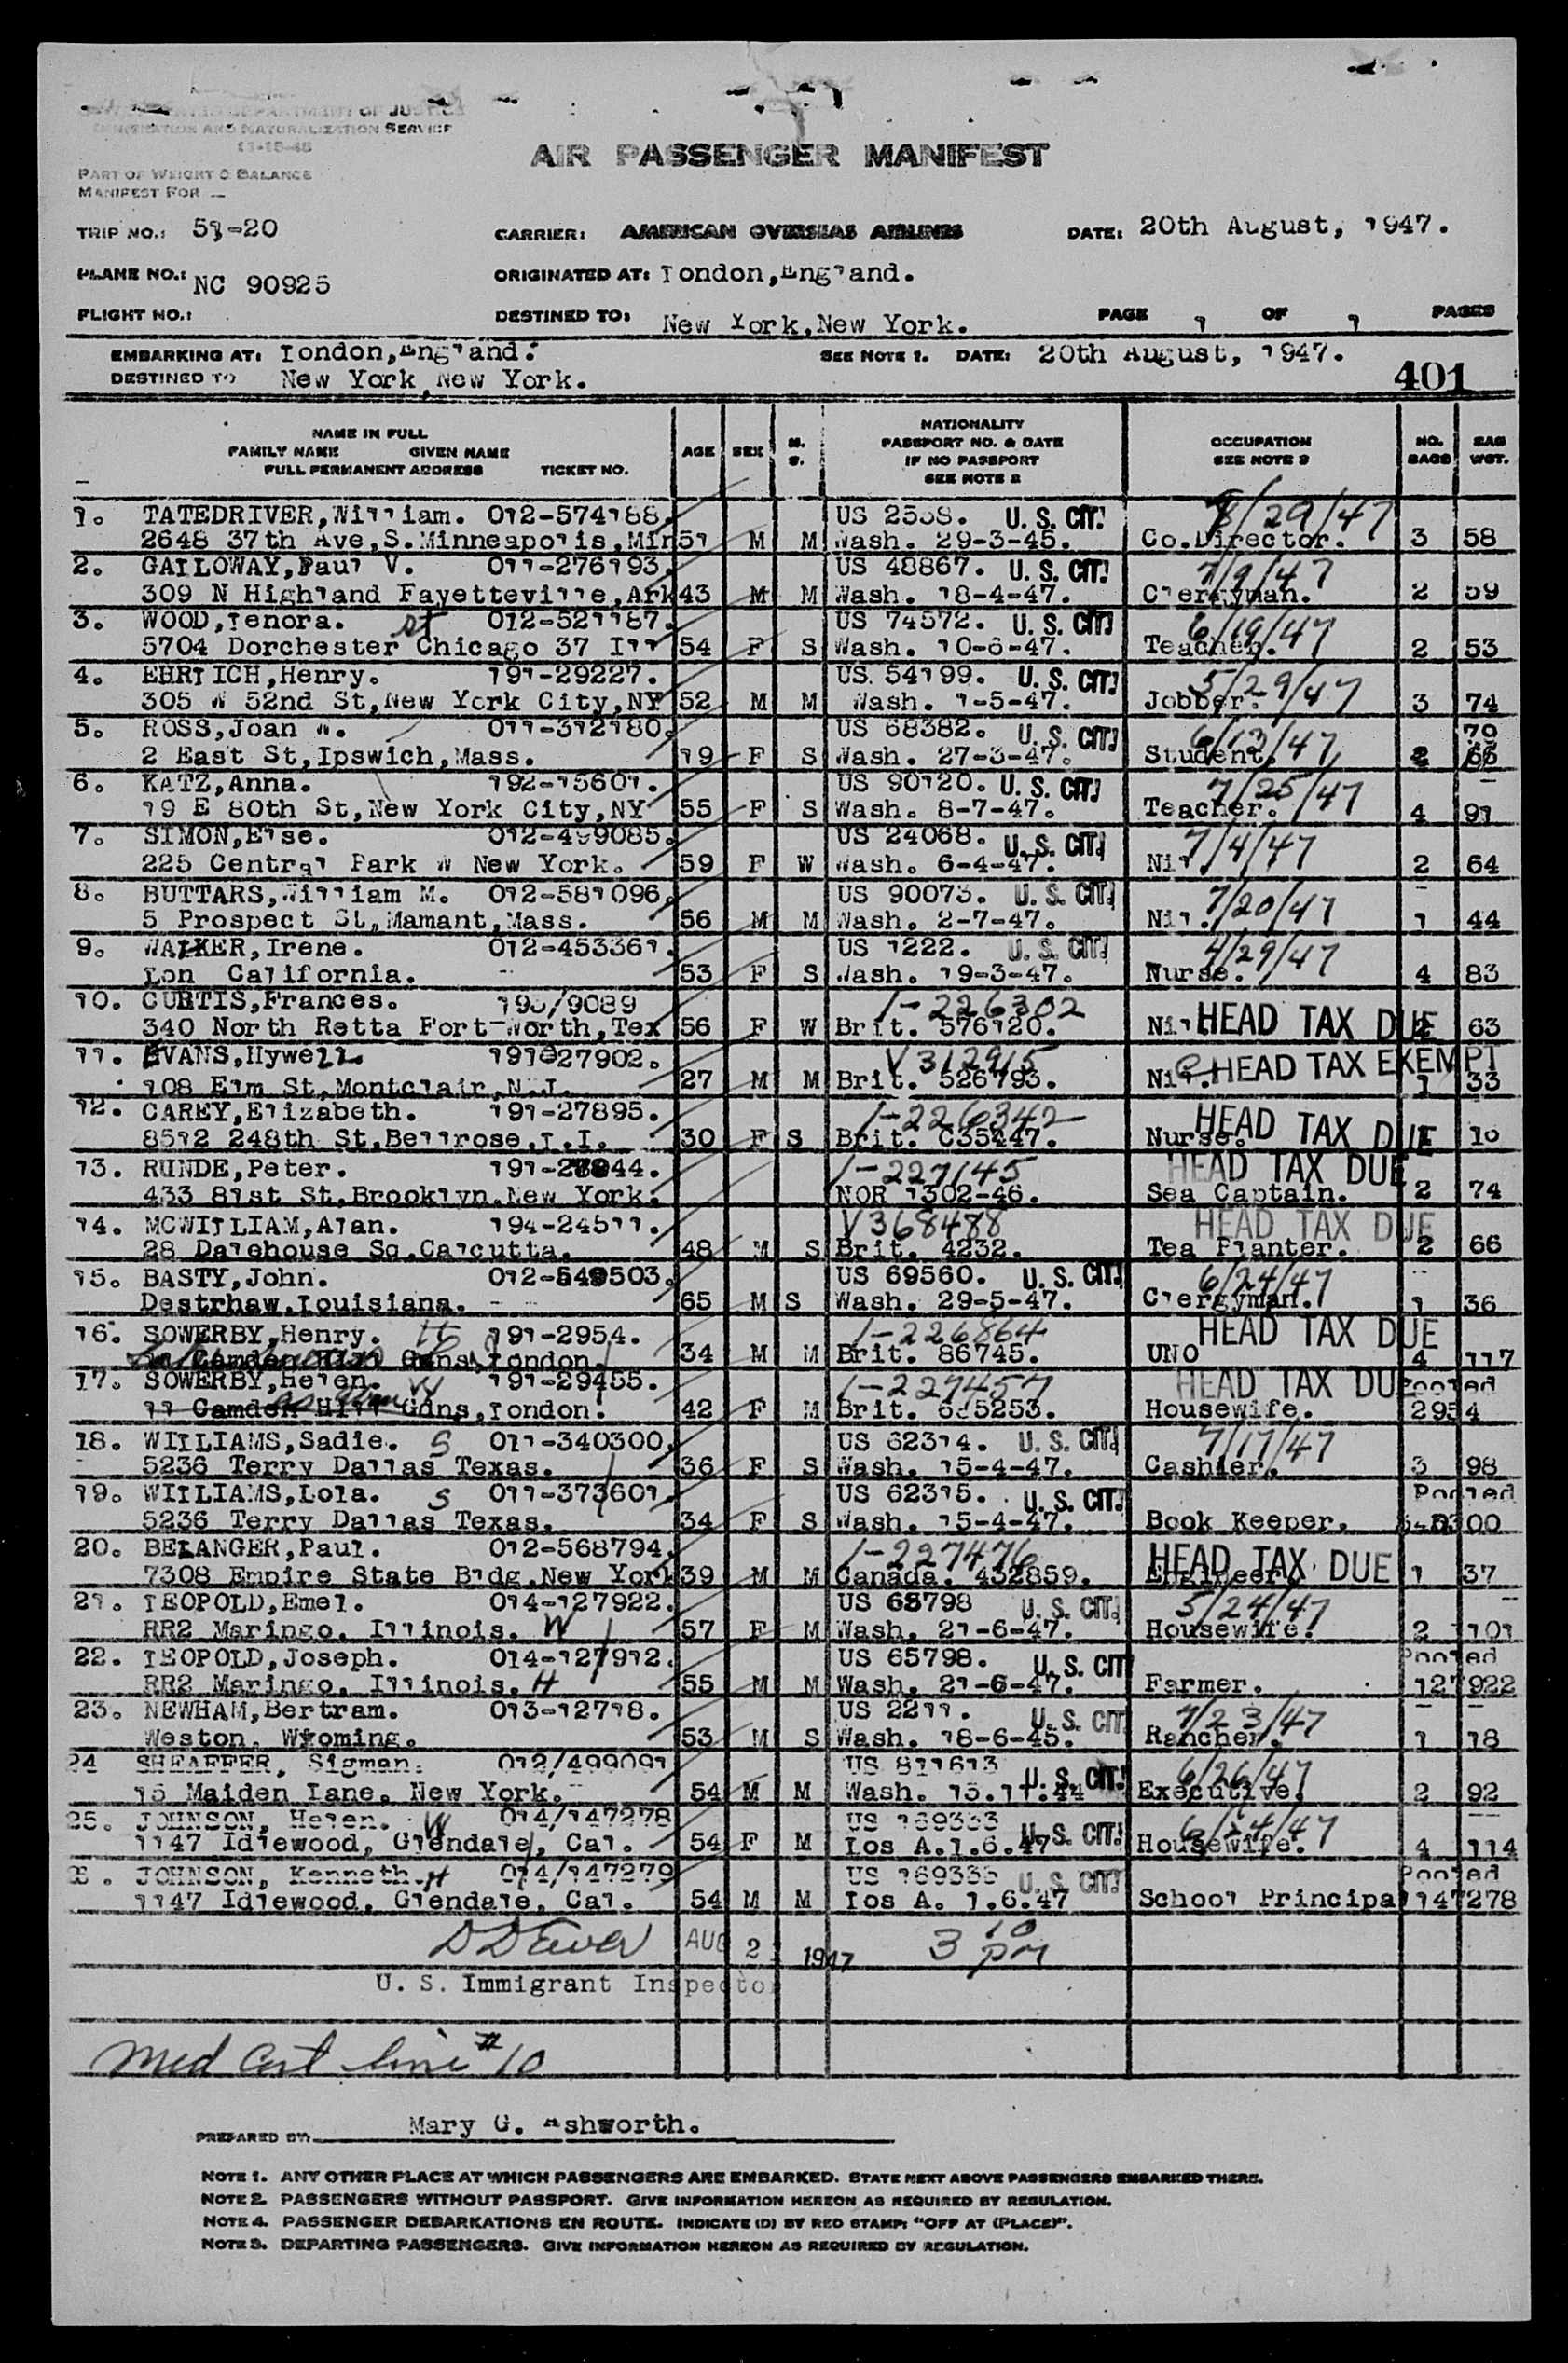 DEPARTMENT OF JUSTICE
IMMIGRATION AND NATURALIZATION SERVICE
11-15-45
PART OF WEIGHT & BALANCE
MANIFEST FOR —
AIR PASSENGER MANIFEST
TRIP NO.: 51-20 CARRIER: AMERICAN OVERSEAS AIRLINES DATE: 20th August, 1947.
PLANE NO.: NC 90925 ORIGINATED AT: London,England.
FLIGHT NO.: DESTINED TO: New York,New York. PAGE 1 OF 1 PAGES
EMBARKING AT: London,England. SEE NOTE 1. DATE: 20th August, 1947.
DESTINED TO New York,New York. 401
NAME IN FULL
FAMILY NAME GIVEN NAME
FULL PERMANENT ADDRESS TICKET NO.
AGE SEX M. S.
NATIONALITY
PASSPORT NO. & DATE
IF NO PASSPORT
SEE NOTE 2
OCCUPATION
SEE NOTE 3
NO. BAGS
BAG WGT.
1. TATEDRIVER,William. 012-574188. US 2538. U. S. CIT. 8/29/47
2648 37th Ave,S.Minneapolis,Min 51 M M Wash. 29-3-46. Co.Director. 3 58
2. GALLOWAY,Paul V. 011-276193. US 48867. U. S. CIT. 7/9/47
309 N Highland Fayetteville,Ark 43 M M Wash. 18-4-47. Clergyman. 2 59
3. WOOD,Lenora. st 012-521187. US 74572. U. S. CIT. 6/19/47
5704 Dorchester Chicago 37 Ill 54 F S Wash. 10-6-47. Teacher. 2 53
4. EHRLICH,Henry. 191-29227. US. 54199. U. S. CIT. 5/29/47
305 W 52nd St,New York City,NY 52 M M Wash. 1-5-47. Jobber. 3 74
5. ROSS,Joan W. 011-312180. US 68382. U. S. CIT. 6/13/47 79
2 East St,Ipswich,Mass. 19 F S Wash. 27-3-47. Student. 2 66
6. KATZ,Anna. 192-15601. US 90120. U. S. CIT. 7/25/47
19 E 80th St,New York City,NY 55 F S Wash. 8-7-47. Teacher. 4 91
7. SIMON,Else. 012-499085. US 24068. U. S. CIT. 7/4/47
225 Central Park W New York. 59 F W Wash. 6-4-47. Nil. 2 64
8. BUTTARS,William M. 012-581096. US 90073. U. S. CIT. 7/20/47
5 Prospect St,Mamant,Mass. 56 M M Wash. 2-7-47. Nil. 1 44
9. WALKER,Irene. 012-453361. US 1222. U. S. CIT. 4/29/47
Lon California. 53 F S Wash. 19-3-47. Nurse. 4 83
10. CURTIS,Frances. 190/9089 1-226302
340 North Retta Fort-Worth,Tex 56 F W Brit. 576120. Nil HEAD TAX DUE 2 63
11. EVANS,Hywell. 191-27902. V312915
108 Elm St,Montclair,N.J. 27 M M Brit. 526793. Nil. HEAD TAX EXEMPT 1 33
12. CAREY,Elizabeth. 191-27895. 1-226342
8512 248th St,Bellrose,L.I. 30 F S Brit. C35447. Nurse. HEAD TAX DUE 1 10
13. RUNDE,Peter. 191-28944. 1-227145 HEAD TAX DUE
433 81st St,Brooklyn,New York. NOR 1302-46. Sea Captain. 2 74
14. MCWILLIAM,Alan. 194-24511. V368488 HEAD TAX DUE
28 Dalehouse Sq,Calcutta. 48 M S Brit. 4232. Tea Planter. 2 66
15. BASTY,John. 012-549503. US 69560. U. S. CIT. 6/24/47
Destrhaw,Louisiana. 65 M S Wash. 29-5-47. Clergyman. 1 36
16. SOWERBY,Henry. H 191-2954. 1-226864 HEAD TAX DUE
Camden Hill Gdns,London. 34 M M Brit. 86745. UNO 4 117
17. SOWERBY,Helen. W 191-29455. 1-227457 HEAD TAX DUE Pooled
11 Camden Hill Gdns,London. 42 F M Brit. 685253. Housewife. 2954
18. WILLIAMS,Sadie. S 011-340300. US 62314. U. S. CIT. 7/17/47
5236 Terry Dallas Texas. 36 F S Wash. 15-4-47. Cashier. 3 98
19. WILLIAMS,Lola. S 011-373601. US 62315. U. S. CIT. Pooled
5236 Terry Dallas Texas. 34 F S Wash. 15-4-47. Book Keeper. 340300
20. BELANGER,Paul. 012-568794. 1-227476 HEAD TAX DUE
7308 Empire State Bldg,New York 39 M M Canada. 432859. Engineer. 1 37
21. LEOPOLD,Emel. 014-127922. US 65798 U. S. CIT. 5/24/47
RR2 Maringo, Illinois. W 57 F M Wash. 21-6-47. Housewife. 2 101
22. LEOPOLD,Joseph. 014-127912. US 65798. U. S. CIT Pooled
RR2 Maringo, Illinois. H 55 M M Wash. 21-6-47. Farmer. 127922
23. NEWHAM,Bertram. 013-12718. US 2211. U. S. CIT 7/23/47
Weston, Wyoming. 53 M S Wash. 18-6-45. Rancher. 1 18
24 SHEAFFER, Sigman. 012/499091 US 811613 U. S. CIT. 6/26/47
15 Maiden Lane, New York. 54 M M Wash. 15.11.44 Executive. 2 92
25. JOHNSON, Helen. W 014/147278 US 169333 U. S. CIT. 6/24/47
1147 Idlewood, Glendale, Cal. 54 F M Los A.1.6.47 Housewife. 4 114
26. JOHNSON, Kenneth. H 014/147279 US 169333 U. S. CIT. Pooled
1147 Idlewood, Glendale, Cal. 54 M M Los A. 1.6.47 School Principal 147278
AUG 2 1947 3 10 pm
U. S. Immigrant Inspector
Med Cert line #10
PREPARED BY: Mary G. Ashworth.
NOTE 1. ANY OTHER PLACE AT WHICH PASSENGERS ARE EMBARKED. STATE NEXT ABOVE PASSENGERS EMBARKED THERE.
NOTE 2. PASSENGERS WITHOUT PASSPORT. GIVE INFORMATION HEREON AS REQUIRED BY REGULATION.
NOTE 4. PASSENGER DEBARKATIONS EN ROUTE. INDICATE (D) BY RED STAMP: "OFF AT (PLACE)".
NOTE 3. DEPARTING PASSENGERS. GIVE INFORMATION HEREON AS REQUIRED BY REGULATION.